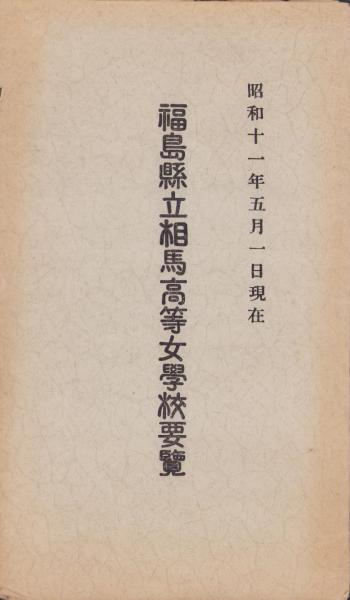 昭和十一年五月一日現在
福島縣立相馬高等女學校要覽